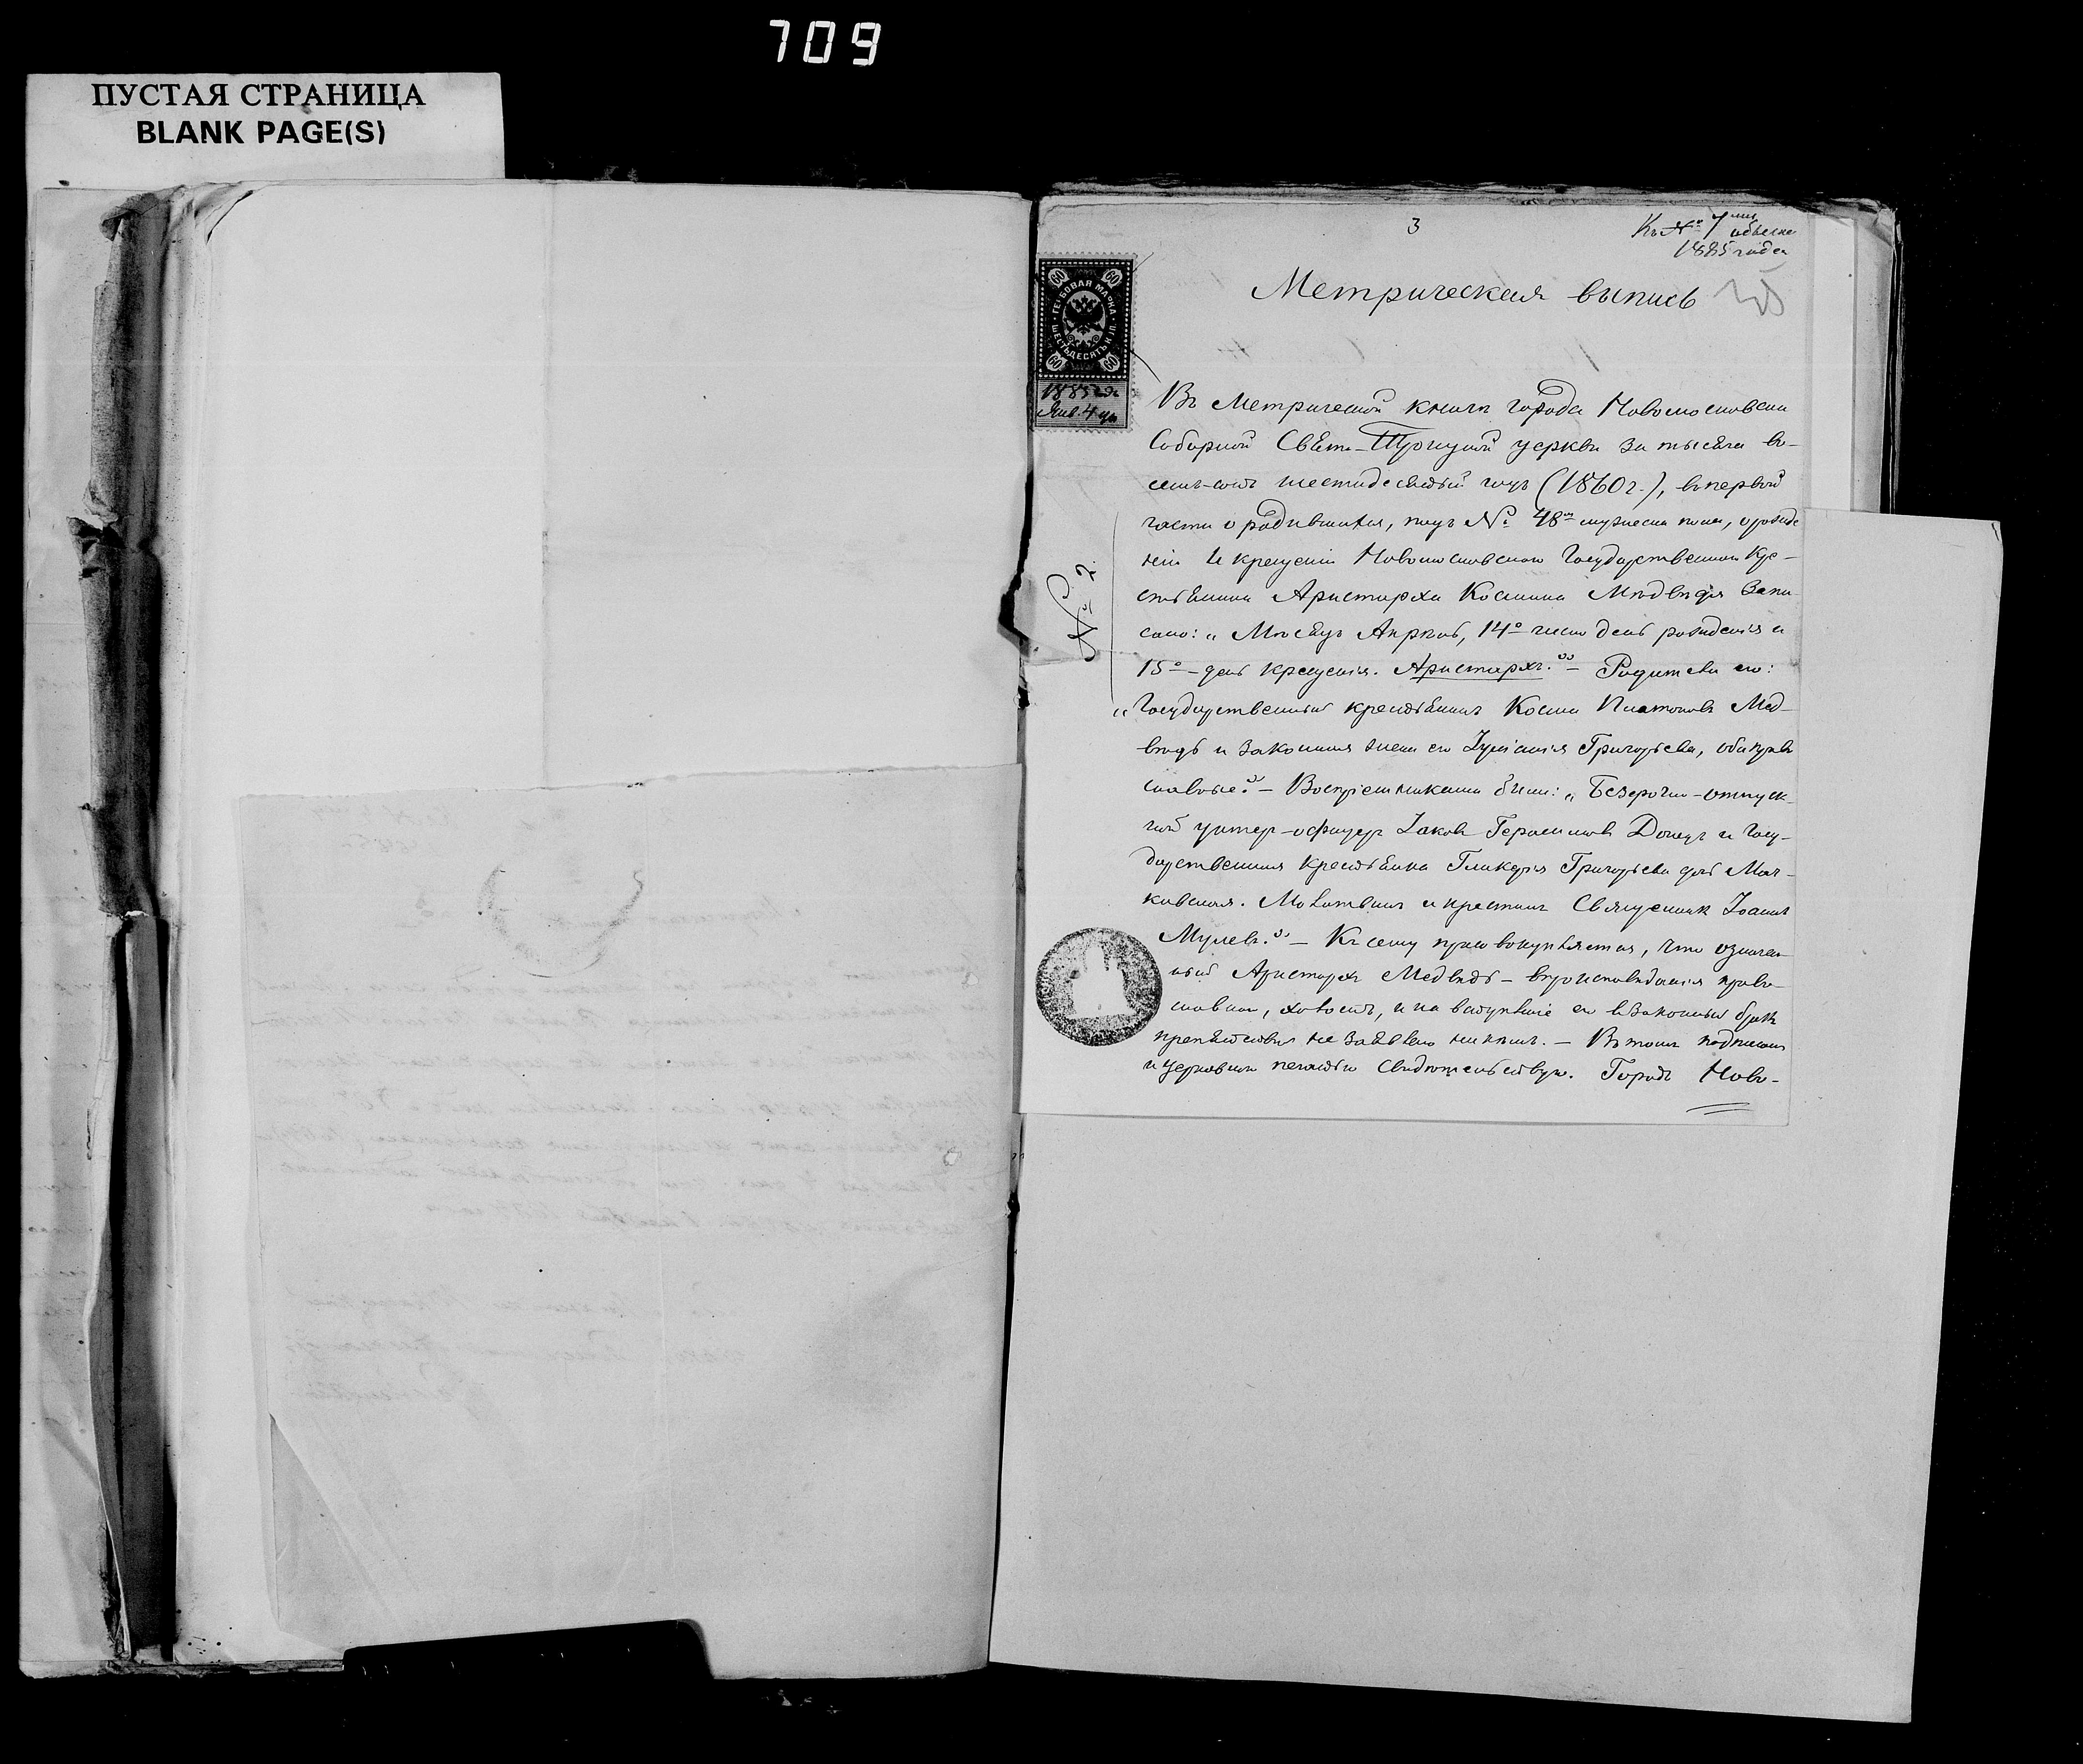 709
ПУСТАЯ СТРАНИЦА
BLANK PAGE(S)
3
Къ № 7 обыска
1885 года
Метрическая выпись
ГЕРБОВАЯ МАРКА
ШЕСТЬДЕСЯТЪ КОП.
60 60 60 60
1885 года
Янв. 4 дня
№ 2.
Въ Метрической книгѣ города Новомосковска
Соборной Свято-Троицкой церкви за тысяча во-
семь-сотъ шестидесятый годъ (1860 г.), въ первой
части о родившихся, подъ № 48 мужеска пола, о рожде
ніи и крещеніи Новомосковскаго Государственнаго Кре-
стьянина Аристарха Космина Медвѣдя запи
сано: „Мѣсяцъ Апрѣль, 14е число день рожденія и
15е – день крещенія. Аристархъ.“ – Родители его:
„Государственный крестьянинъ Косма Платоновъ Мед-
вѣдь и законная жена его Іуліанія Григорьева, оба право
славные.“ – Воспріемниками были: „Безсрочно-отпуск-
ной унтер-офицеръ Іаковъ Герасимовъ Донецъ и Госу-
дарственная крестьянка Гликерія Григорьева дочь
Молитвилъ и крестилъ Священникъ Іоаннъ
– Къ сему присовокупляется, что означен
ный Аристархъ Медвѣдь – вѣроисповѣданія право-
славнаго, холостъ, и на вступленіе его въ законный бракъ
препятствія не заявлено никѣмъ. – Въ томъ подписомъ
и церковною печатью свидѣтельствую. Городъ Ново-